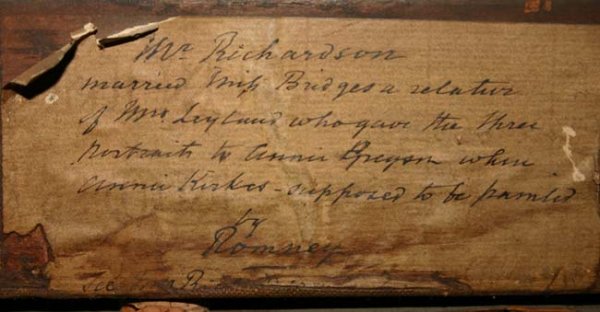 Mr Richardson
married Miss Bridges a relative
of Mrs Leyland who gave the three
Portraits to Annie Greyson when
Annie Kirkes - supposed to be painted
by
Romney